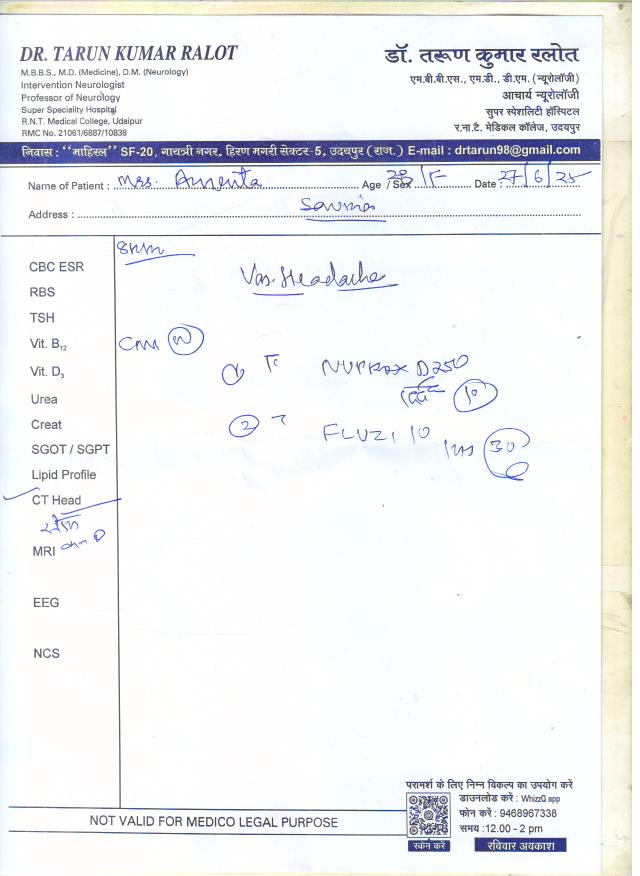 DR. TARUN KUMAR RALOT
M.B.B.S., M.D. (Medicine), D.M. (Neurology)
Intervention Neurologist
Professor of Neurology
Super Speciality Hospital
R.N.T. Medical College, Udaipur
RMC No. 21061/6887/10838
डॉ. तरूण कुमार रलोत
एम.बी.बी.एस., एम.डी., डी.एम. (न्यूरोलॉजी)
आचार्य न्यूरोलॉजी
सुपर स्पेशलिटी हॉस्पिटल
र.ना.टै. मेडिकल कॉलेज, उदयपुर
निवास : "माहिरल" SF-20, गायत्री नगर, हिरण मगरी सेक्टर-5, उदयपुर (राज.) E-mail : drtarun98@gmail.com
Name of Patient : Mrs. Age / Sex 28/F Date : 27/6/25
Address :
CBC ESR
Vas. Headache
RBS
TSH
Vit. B12
Vit. D3
① T NUPROX D 250
10
Urea
Creat
② T FLUZI 10
30
SGOT / SGPT
Lipid Profile
CT Head
MRI
EEG
NCS
परामर्श के लिए निम्न विकल्प का उपयोग करें
डाउनलोड करें : WhizzQ app
फोन करें : 9468967338
समय :12.00 - 2 pm
स्कैन करें
रविवार अवकाश
NOT VALID FOR MEDICO LEGAL PURPOSE